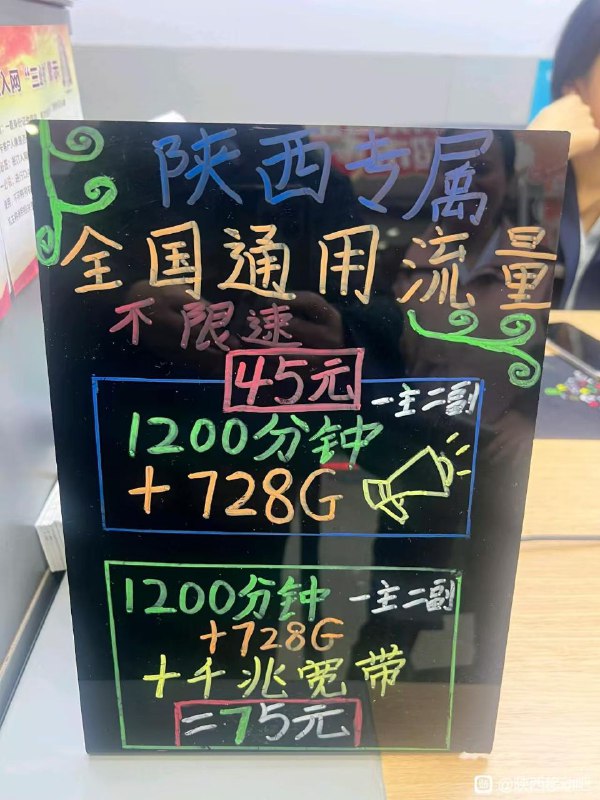 陕西专属
全国通用流量
不限速
45元
一主二副
1200分钟
+728G
1200分钟 一主二副
+728G
+千兆宽带
=75元